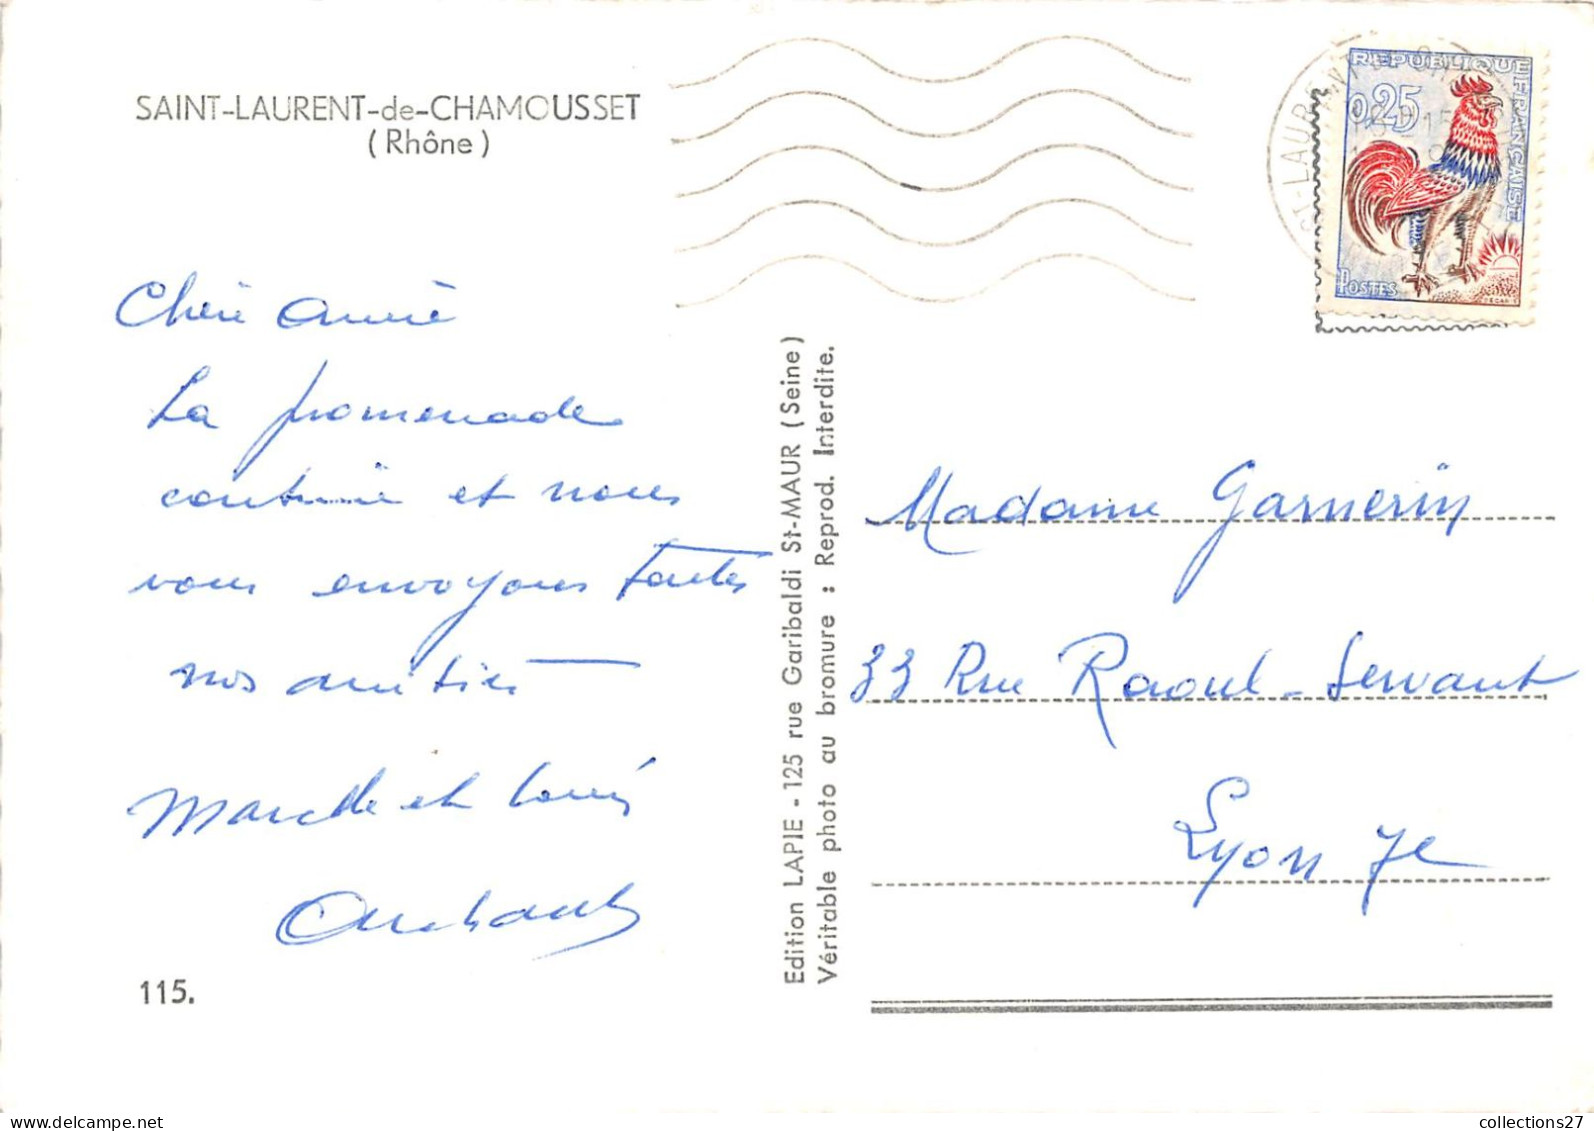 SAINT-LAURENT-de-CHAMOUSSET
(Rhône)
RÉPUBLIQUE FRANÇAISE
0,25
POSTES
ST-LAURENT
Chère Amie
La promenade
continue et nous
vous envoyons toutes
nos amitiés
Marcelle et Louis
115.
Edition LAPIE - 125 rue Garibaldi St-MAUR (Seine)
Véritable photo au bromure : Reprod. Interdite.
Madame Garnerin
33 Rue Raoul-Servant
Lyon 7e
delcampe.net
collections27